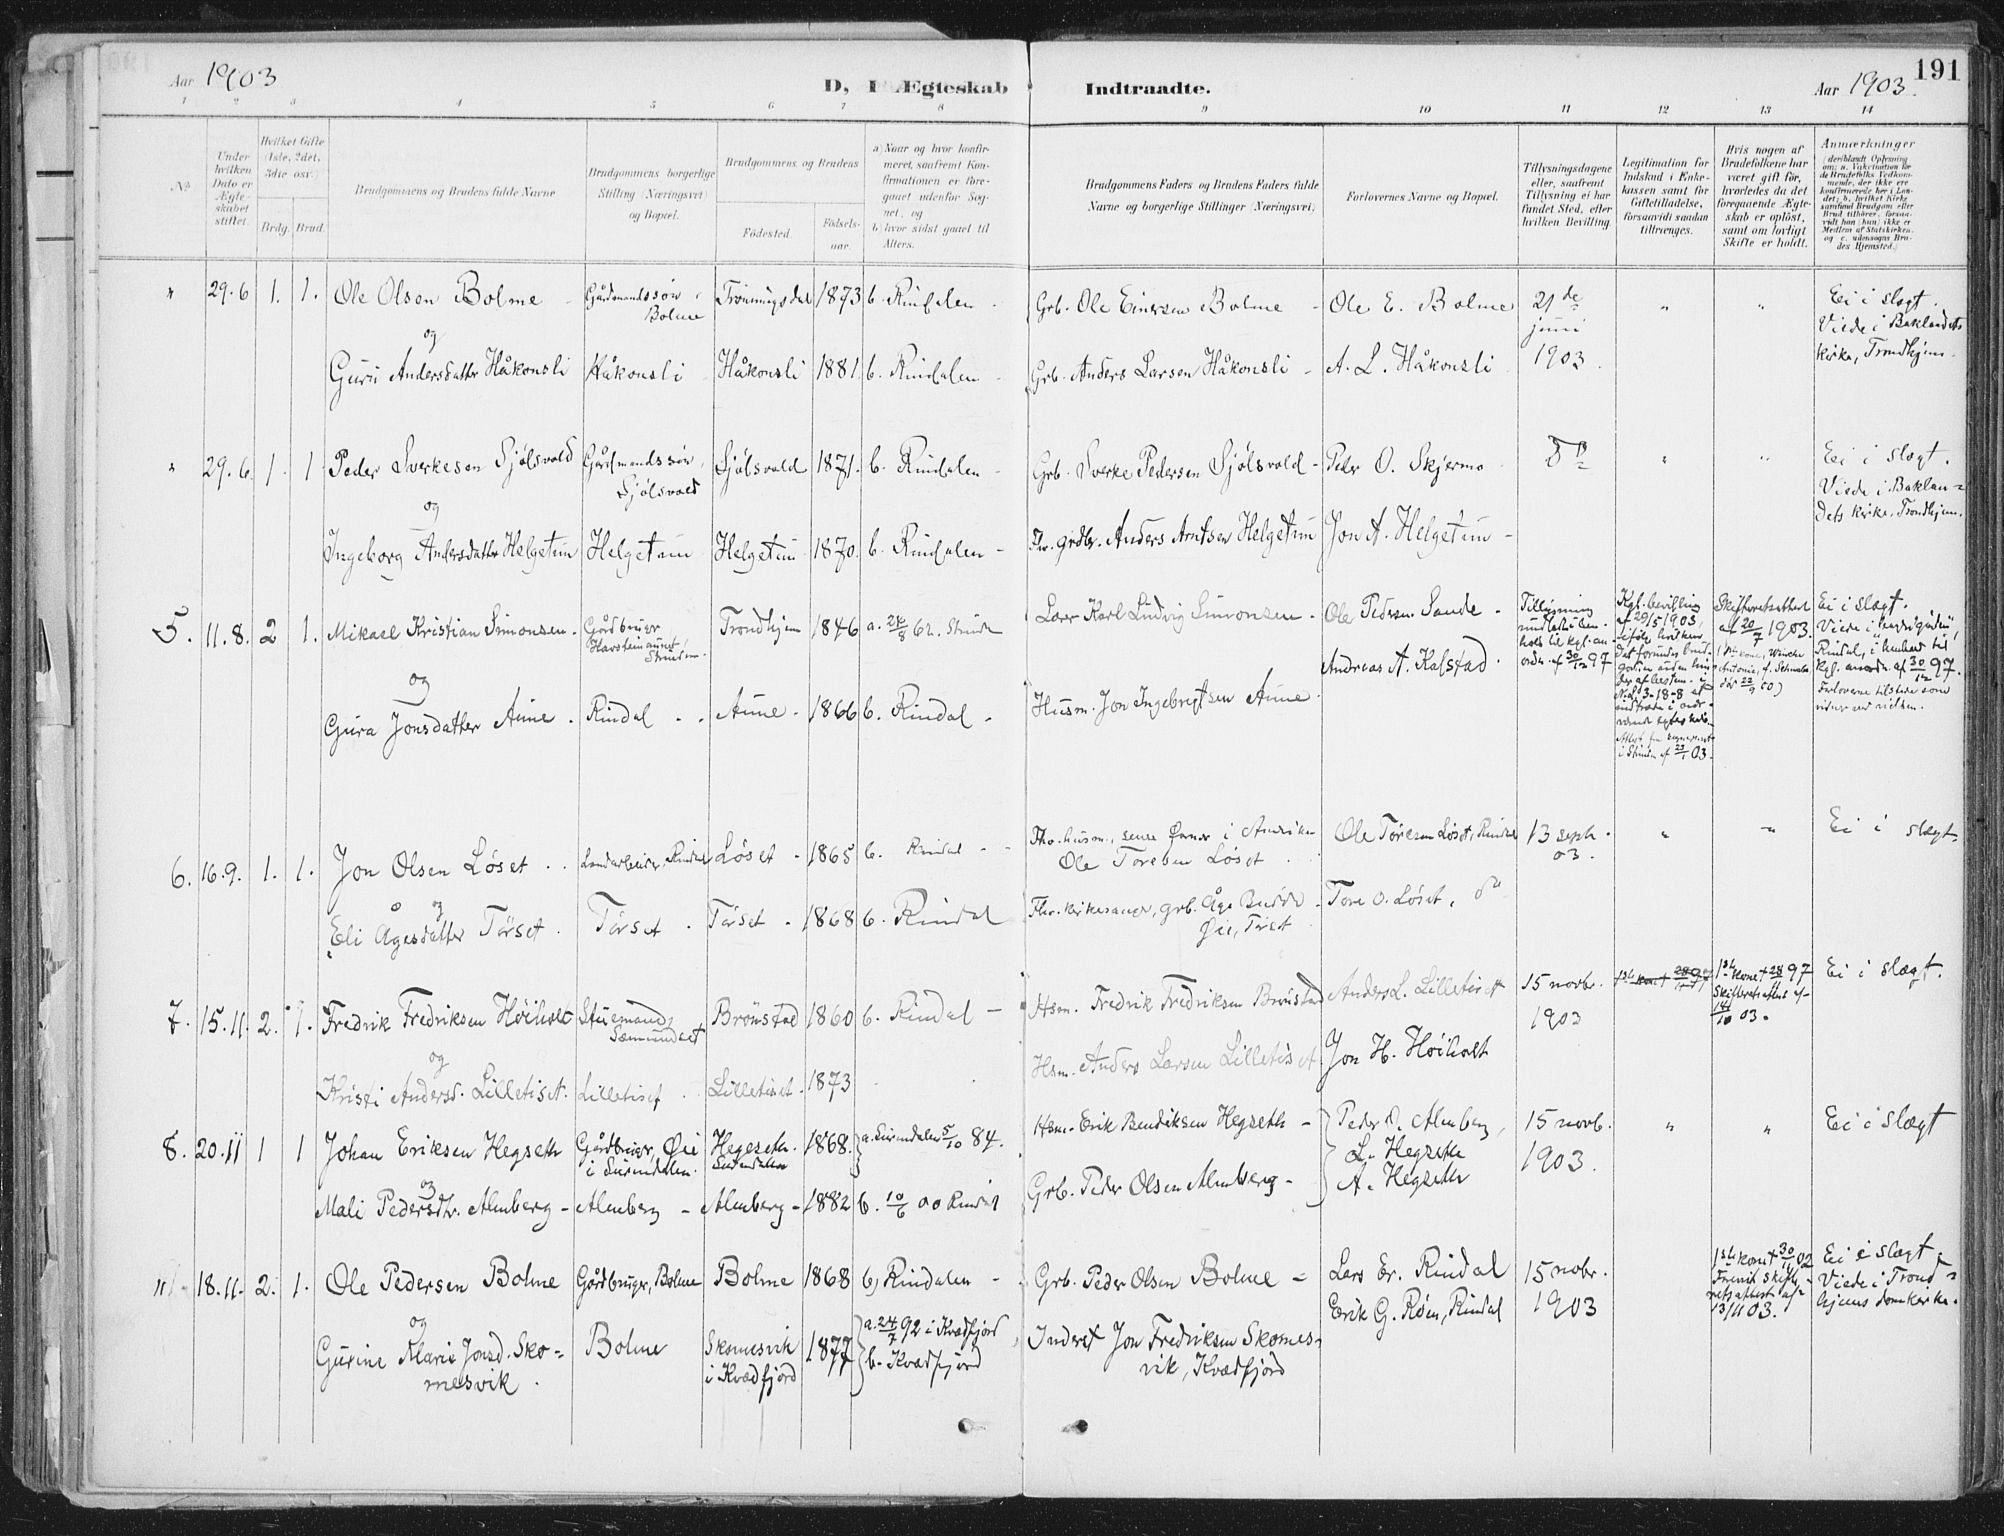 Aar 1903
D, I Ægteskab Indtraadte.
Aar 1903.
191
1 2 3 4 5 6 7 8 9 10 11 12 13 14
No.
Under hvilken Dato er Ægteskabet stiftet.
Hvilket Gifte (1ste, 2det, 3die osv.)
Brdg. Brud.
Brudgommens og Brudens fulde Navne
Brudgommens borgerlige Stilling (Næringsvei) og Bopæl.
Brudgommens og Brudens
Fødested.
Fødselsaar.
a) Naar og hvor konfirmeret, saafremt Konfirmationen er foregaaet udenfor Sognet, og
b) hvor sidst gaaet til Alters.
Brudgommens Faders og Brudens Faders fulde Navne og borgerlige Stillinger (Næringsvei)
Forlovernes Navne og Bopæl.
Tillysningsdagene eller, saafremt Tillysning ei har fundet Sted, efter hvilken Bevilling.
Legitimation for Indskud i Enkekassen samt for Giftetilladelse, forsaavidt saadan tiltrænges.
Hvis nogen af Brudefolkene har været gift før, hvorledes da det foregaaende Ægteskab er opløst, samt om lovligt Skifte er holdt.
Anmerkninger
" 29.6 1. 1. Ole Olsen Bolme - Gårdmandssøn, Bolme Trønningsdal 1873 b. Rindalen - Grb. Ole Einersen Bolme - Ole E. Bolme 21de juni 1903 " " Ei i slægt. Viede i Baklandets kirke, Trondhjem.
og
Guru Andersdatter Håkonsli Håkonsli Håkonsli 1881. b. Rindalen - Grb. Anders Larsen Håkonsli - A. L. Håkonsli
" 29.6. 1. 1 Peder Sverkesen Sjølsvold Gårdmandssøn, Sjølsvold Sjølsvold 1871. b. Rindalen - Grb. Sverke Pedersen Sjølsvold - Peder O. Skjermo do " " Ei i slægt. Viede i Baklandets kirke, Trondhjem.
og
Ingeborg Andersdatter Helgetun Helgetun Helgetun 1870. b. Rindalen - Fhv. grdbr. Anders Arntsen Helgetun Jon A. Helgetun -
5. 11.8. 2 1. Mikael Kristian Simonsen. Gårdbruger Trondhjem 1846 a. 62. Strinde Karl Ludvig Simonsen - Ole Pedersen Sande - Tillysning undladt i henhold til kgl. anordn. af 30/12 97 Kgl. bevilling af 29/5 1903, Skifteretsattest af 20/7 1903. Ei i slægt.
og
Gura Jonsdatter Aune. Rindal - - Aune - 1866 b. Rindal - Husm. Jon Ingebrigtsen Aune. Andreas A. Kalstad.
6. 16.9. 1. 1. Jon Olsen Løset .. Landarbeider, Rindal Løset - 1865 b. Rindal - - Fhv. husm., senere i Amerika Ole Toresen Løset .. Ole Toresen Løset, Rindal 13 sept. 03. " " Ei i slægt
og
Eli Ågesdatter Tørset. Tørset. Tørset - 1868 b. Rindal Fhv. kirkesanger, grb. Åge Øie, Tørset Tore O. Løset, do
7. 15.11. 2. 1. Fredrik Fredriksen Høiholt Stuemand, Brønstad 1860 b. Rindal - Hsm. Fredrik Fredriksen Brønstad Anders L. Lilletiset 15 novbr. 1903 1ste kone † 97 Skifteretsattest af 14/10 03. Ei i slægt.
og
Kristi Andersd. Lilletiset. Lilletiset. Lilletiset. 1873 Hsm. Anders Larsen Lilletiset Jon H. Høiholt
8. 20.11 1 1 Johan Eriksen Hegseth Gårdbruger, Øie i Surendalen. Hegseth. Surendalen 1868. a. Surendalen 5/10 84. Hsm. Erik Bendiksen Hegseth - Peder O. Almberg, L. Hegseth A. Hegseth 15 novb. 1903. " " Ei i slægt
og
Mali Pedersdtr. Almberg - Almberg - Almberg - 1882 b. 10/6 00 Rindal Grb. Peder Olsen Almberg -
" 18.11. 2. 1. Ole Pedersen Bolme Gårdbruger, Bolme Bolme 1868 b) Rindalen - Grb. Peder Olsen Bolme - Lars Er. Rindal Erik G. Røen, Rindal 15 nobr. 1903 1ste kone † 30/11 02 13/11 03. Ei i slægt. Viede i Trondhjems domkirke.
og
Gurine Marie Jonsd. Skomesvik. Bolme Skomesvik i Kvædfjord 1877 a. 24/7 92 i Kvædfjord b. Kvædfjord Inderst Jon Fredriksen Skomesvik, Kvædfjord